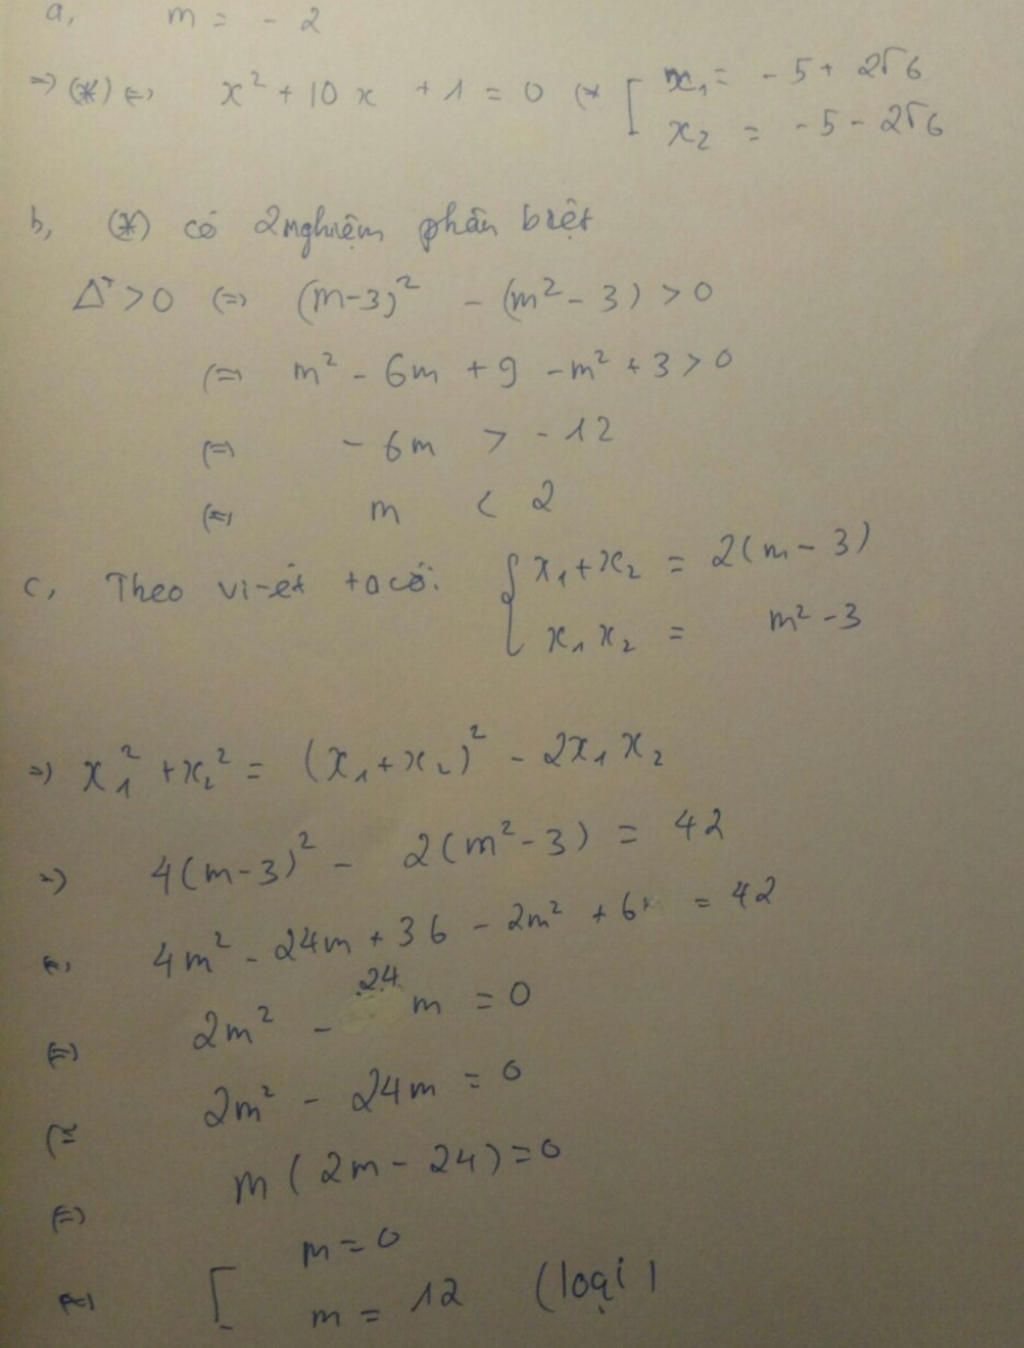 a, m = - 2
=> (*) <=> x² + 10x + 1 = 0 <=> [ x₁ = - 5 + 2√6
x₂ = - 5 - 2√6
b, (*) có 2 nghiệm phân biệt
Δ' > 0 <=> (m-3)² - (m² - 3) > 0
<=> m² - 6m + 9 - m² + 3 > 0
<=> - 6m > - 12
<=> m < 2
c, Theo vi-ét ta có: { x₁ + x₂ = 2(m - 3)
x₁ x₂ = m² - 3
=> x₁² + x₂² = (x₁ + x₂)² - 2x₁ x₂
=> 4(m-3)² - 2(m² - 3) = 42
<=> 4m² - 24m + 36 - 2m² + 6 = 42
<=> 2m² - 24 m = 0
<=> 2m² - 24m = 0
<=> m ( 2m - 24) = 0
<=> [ m = 0
m = 12 (loại)